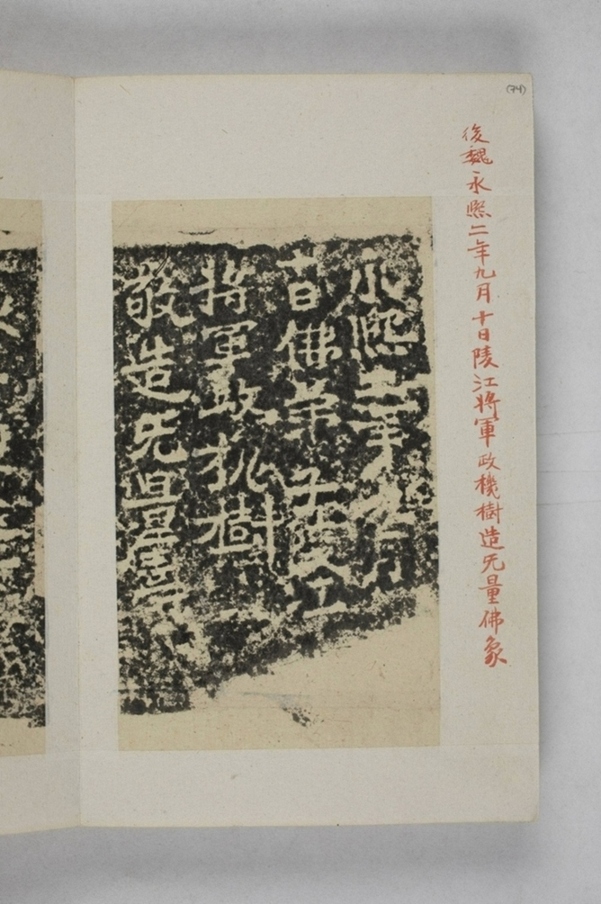 (74)
後魏永熙二年九月十日陵江將軍政機樹造无量佛象
永熙二年九月
十日佛弟子陵江
將軍政扒樹
敬造无量